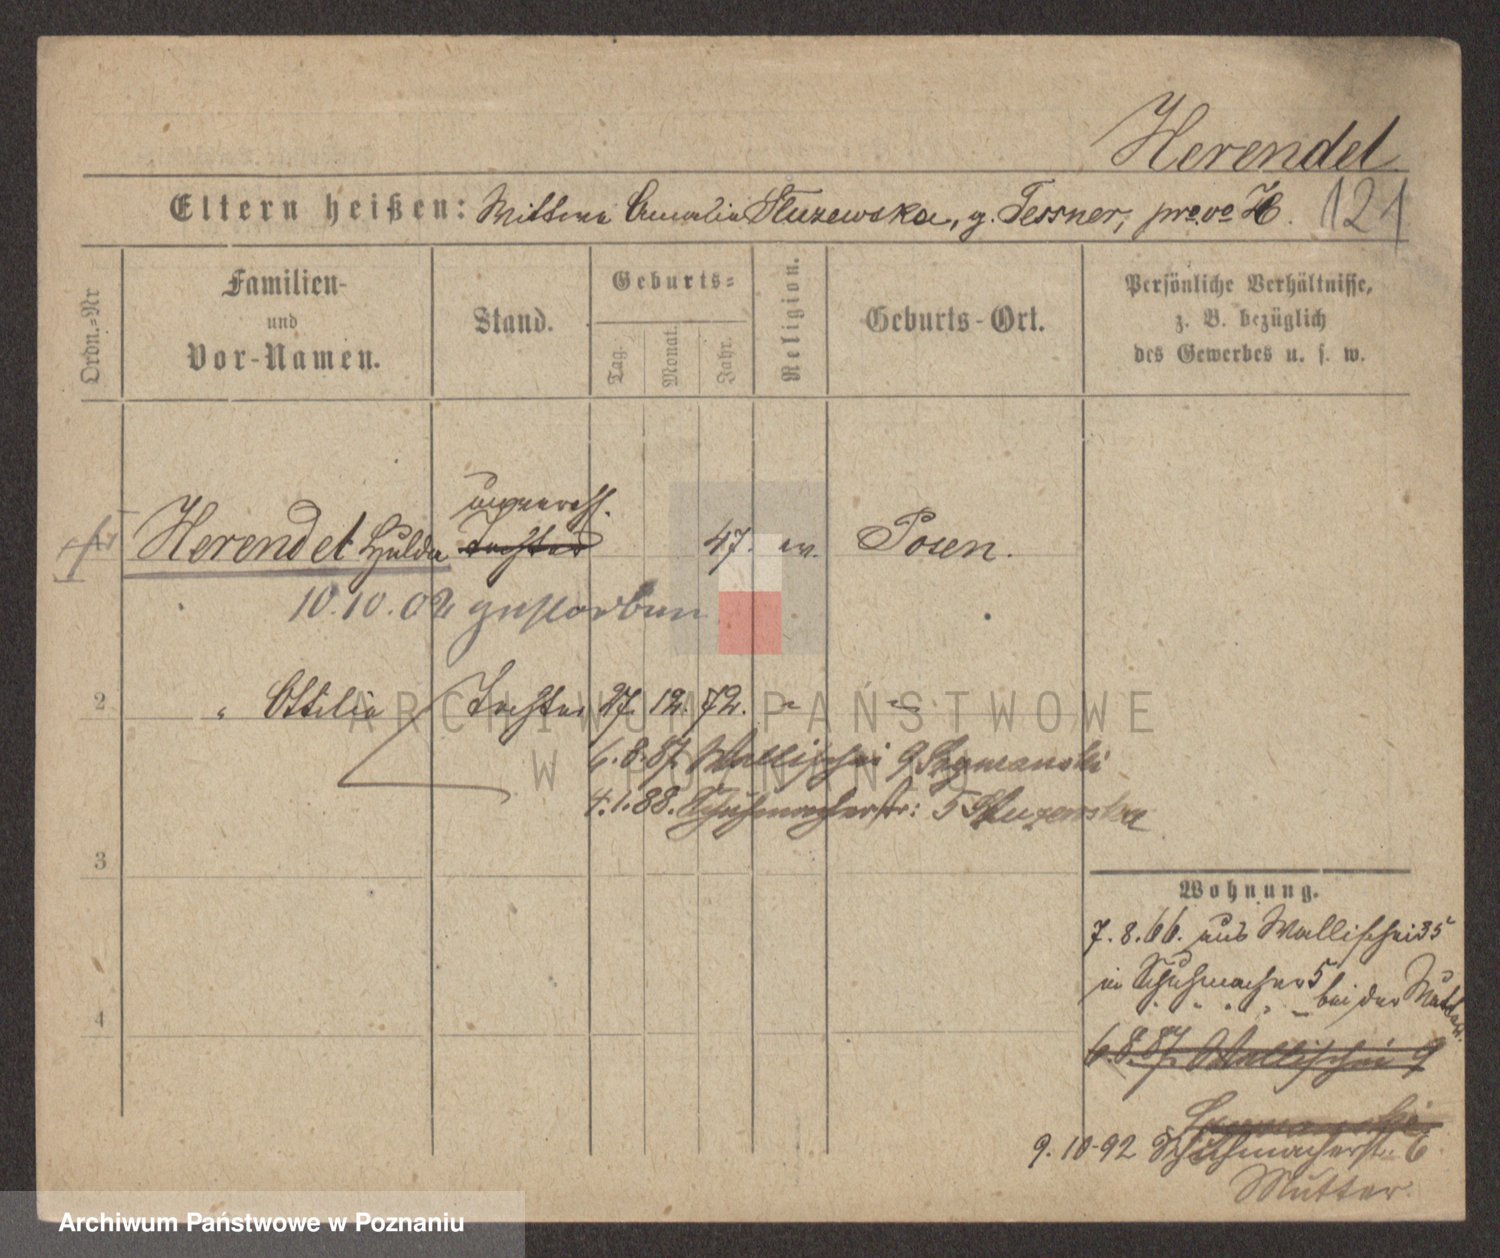 Herendel
Eltern heißen: Wittwe Amalia Sluzewska, g. Tessner, pro vo H. 121
Ordn.=Nr
Familien-
und
Vor-Namen.
Stand.
Geburts=
Tag.
Monat.
Jahr.
Religion.
Geburts-Ort.
Persönliche Verhältnisse,
z. B. bezüglich
des Gewerbes u. s. w.
unvereh.
Herendel Hulda Tochter 47. ev. Posen.
10.10.02 gestorben
2 " Ottilie Tochter 27. 12. 72. " "
6.8.87. Wallischei 9 Szymanski
4.1.88. Schuhmacherstr: 5 Sluzewska
3
4
Wohnung.
7.8.66. aus Wallischei 35
in Schuhmacher 5 bei der Mutter
6.8.87. Wallischei 9
Szymanski
9.10.92 Schuhmacherstr. 6
Mutter.
ARCHIWUM PAŃSTWOWE
W POZNANIU
Archiwum Państwowe w Poznaniu